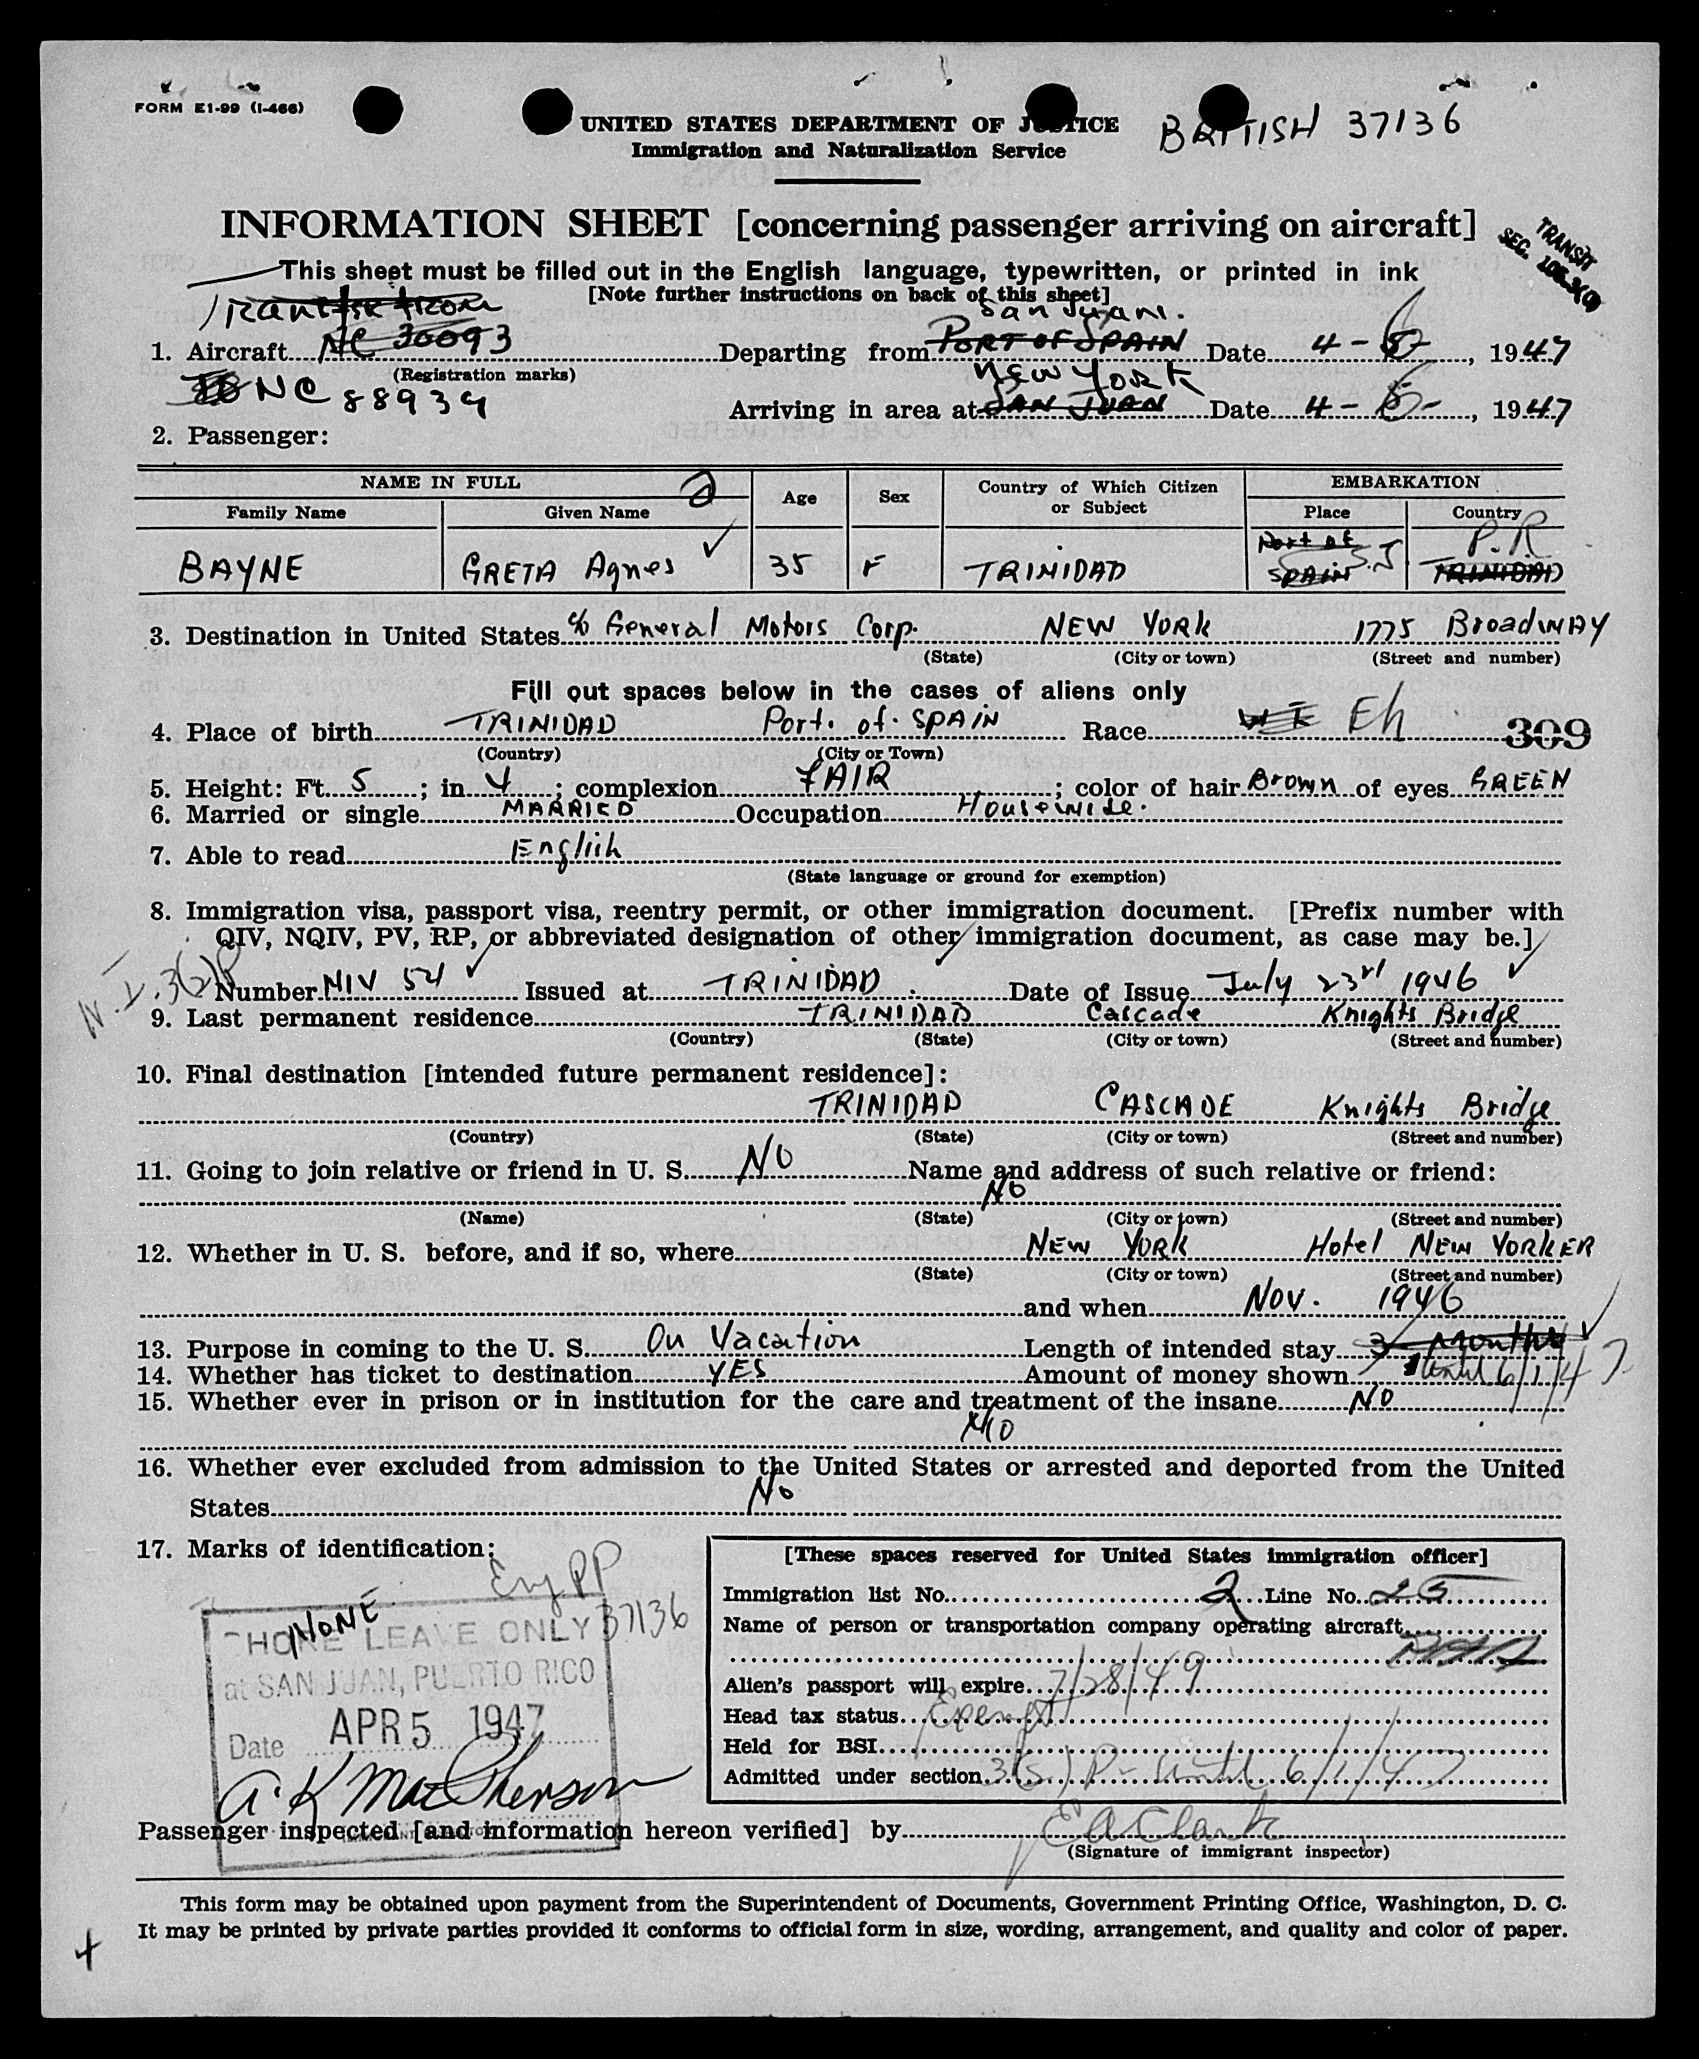 FORM E1-99 (I-466)
UNITED STATES DEPARTMENT OF JUSTICE
BRITISH 37136
Immigration and Naturalization Service
INFORMATION SHEET [concerning passenger arriving on aircraft]
TRANSIT
SEC.
This sheet must be filled out in the English language, typewritten, or printed in ink
[Note further instructions on back of this sheet]
Transfer from
San Juan.
1. Aircraft NC 30093 Departing from PORT OF SPAIN Date 4-6, 1947
(Registration marks)
New York
NC 88939
Arriving in area at SAN JUAN Date 4-6-, 1947
2. Passenger:
NAME IN FULL Age Sex Country of Which Citizen or Subject EMBARKATION
Family Name Given Name Place Country
BAYNE GRETA Agnes 35 F TRINIDAD Port of SPAIN S.J. P.R TRINIDAD
3. Destination in United States c/o General Motors Corp. NEW YORK 1775 BroadWAY
(State) (City or town) (Street and number)
Fill out spaces below in the cases of aliens only
4. Place of birth TRINIDAD Port. of. SPAIN Race W I Eh 309
(Country) (City or Town)
5. Height: Ft. 5; in 4; complexion FAIR; color of hair Brown of eyes GREEN
6. Married or single MARRIED Occupation Housewife.
7. Able to read English
(State language or ground for exemption)
8. Immigration visa, passport visa, reentry permit, or other immigration document. [Prefix number with
QIV, NQIV, PV, RP, or abbreviated designation of other immigration document, as case may be.]
N.I. 3(2)P
Number NIV 54 Issued at TRINIDAD Date of Issue July 23rd 1946
9. Last permanent residence TRINIDAD Cascade Knights Bridge
(Country) (State) (City or town) (Street and number)
10. Final destination [intended future permanent residence]:
TRINIDAD CASCADE Knights Bridge
(Country) (State) (City or town) (Street and number)
11. Going to join relative or friend in U. S. NO Name and address of such relative or friend:
NO
(Name) (State) (City or town) (Street and number)
12. Whether in U. S. before, and if so, where NEW YORK Hotel NEW YORKER
(State) (City or town) (Street and number)
and when Nov. 1946
13. Purpose in coming to the U. S. On Vacation Length of intended stay 3 Months
14. Whether has ticket to destination YES Amount of money shown until 6/1/47
15. Whether ever in prison or in institution for the care and treatment of the insane NO
NO
16. Whether ever excluded from admission to the United States or arrested and deported from the United
States No
17. Marks of identification:
Eng PP
37136
NONE
SHORE LEAVE ONLY
at SAN JUAN, PUERTO RICO
Date APR 5 1947
A. K MacPherson
[These spaces reserved for United States immigration officer]
Immigration list No. 2 Line No. 25
Name of person or transportation company operating aircraft
Alien's passport will expire 7/28/49
Head tax status Exempt
Held for BSI
Admitted under section 3(2) P - until 6/1/47
Passenger inspected [and information hereon verified] by E A Clark
(Signature of immigrant inspector)
This form may be obtained upon payment from the Superintendent of Documents, Government Printing Office, Washington, D. C.
It may be printed by private parties provided it conforms to official form in size, wording, arrangement, and quality and color of paper.